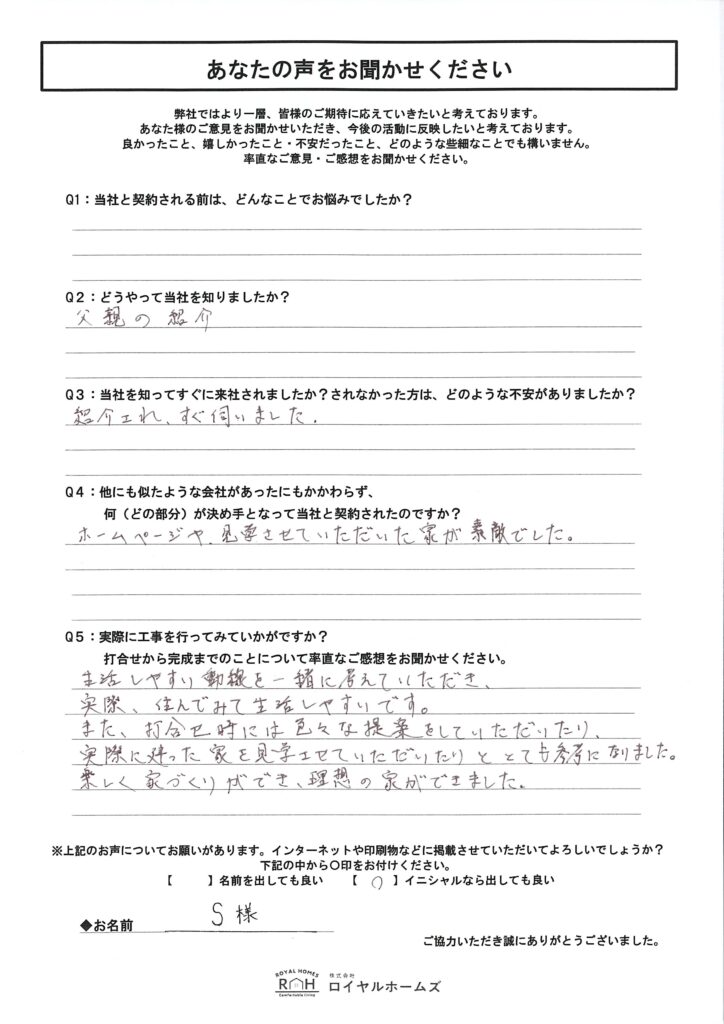 あなたの声をお聞かせください
弊社ではより一層、皆様のご期待に応えていきたいと考えております。
あなた様のご意見をお聞かせいただき、今後の活動に反映したいと考えております。
良かったこと、嬉しかったこと・不安だったこと、どのような些細なことでも構いません。
率直なご意見・ご感想をお聞かせください。
Q1：当社と契約される前は、どんなことでお悩みでしたか？
Q2：どうやって当社を知りましたか？
父親の紹介
Q3：当社を知ってすぐに来社されましたか？されなかった方は、どのような不安がありましたか？
紹介され、すぐ伺いました．
Q4：他にも似たような会社があったにもかかわらず、
何（どの部分）が決め手となって当社と契約されたのですか？
ホームページや、見学させていただいた家が素敵でした。
Q5：実際に工事を行ってみていかがですか？
打合せから完成までのことについて率直なご感想をお聞かせください。
生活しやすい動線を一緒に考えていただき、
実際、住んでみて生活しやすいです。
また、打合せ時には色々な提案をしていただいたり、
実際に建った家を見学させていただいたりととても参考になりました。
楽しく家づくりができ、理想の家ができました．
※上記のお声についてお願いがあります。インターネットや印刷物などに掲載させていただいてよろしいでしょうか？
下記の中から○印をお付けください。
【　　】名前を出しても良い　【 ○ 】イニシャルなら出しても良い
◆お名前　S様
ご協力いただき誠にありがとうございました。
ROYAL HOMES
RH
Comfortable living
株式会社
ロイヤルホームズ